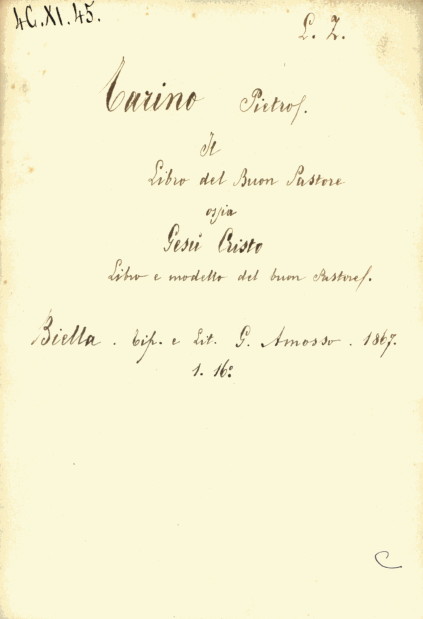 4C.XI.45.
L. 2.
Tarino Pietro.
Il
Libro del Buon Pastore
ossia
Gesù Cristo
Libro e modello del buon Pastore.
Biella. Tip. e Lit. G. Amosso. 1867.
1. 16º
C